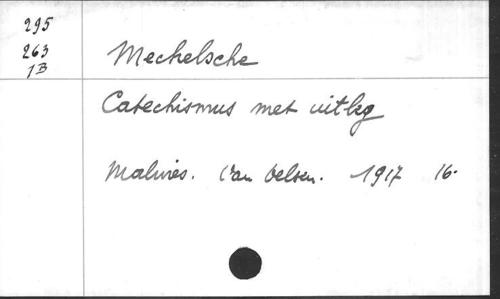 295
263
1B
Mechelsche
Catechismus met uitleg
Malines. Van Velsen. 1917 16.